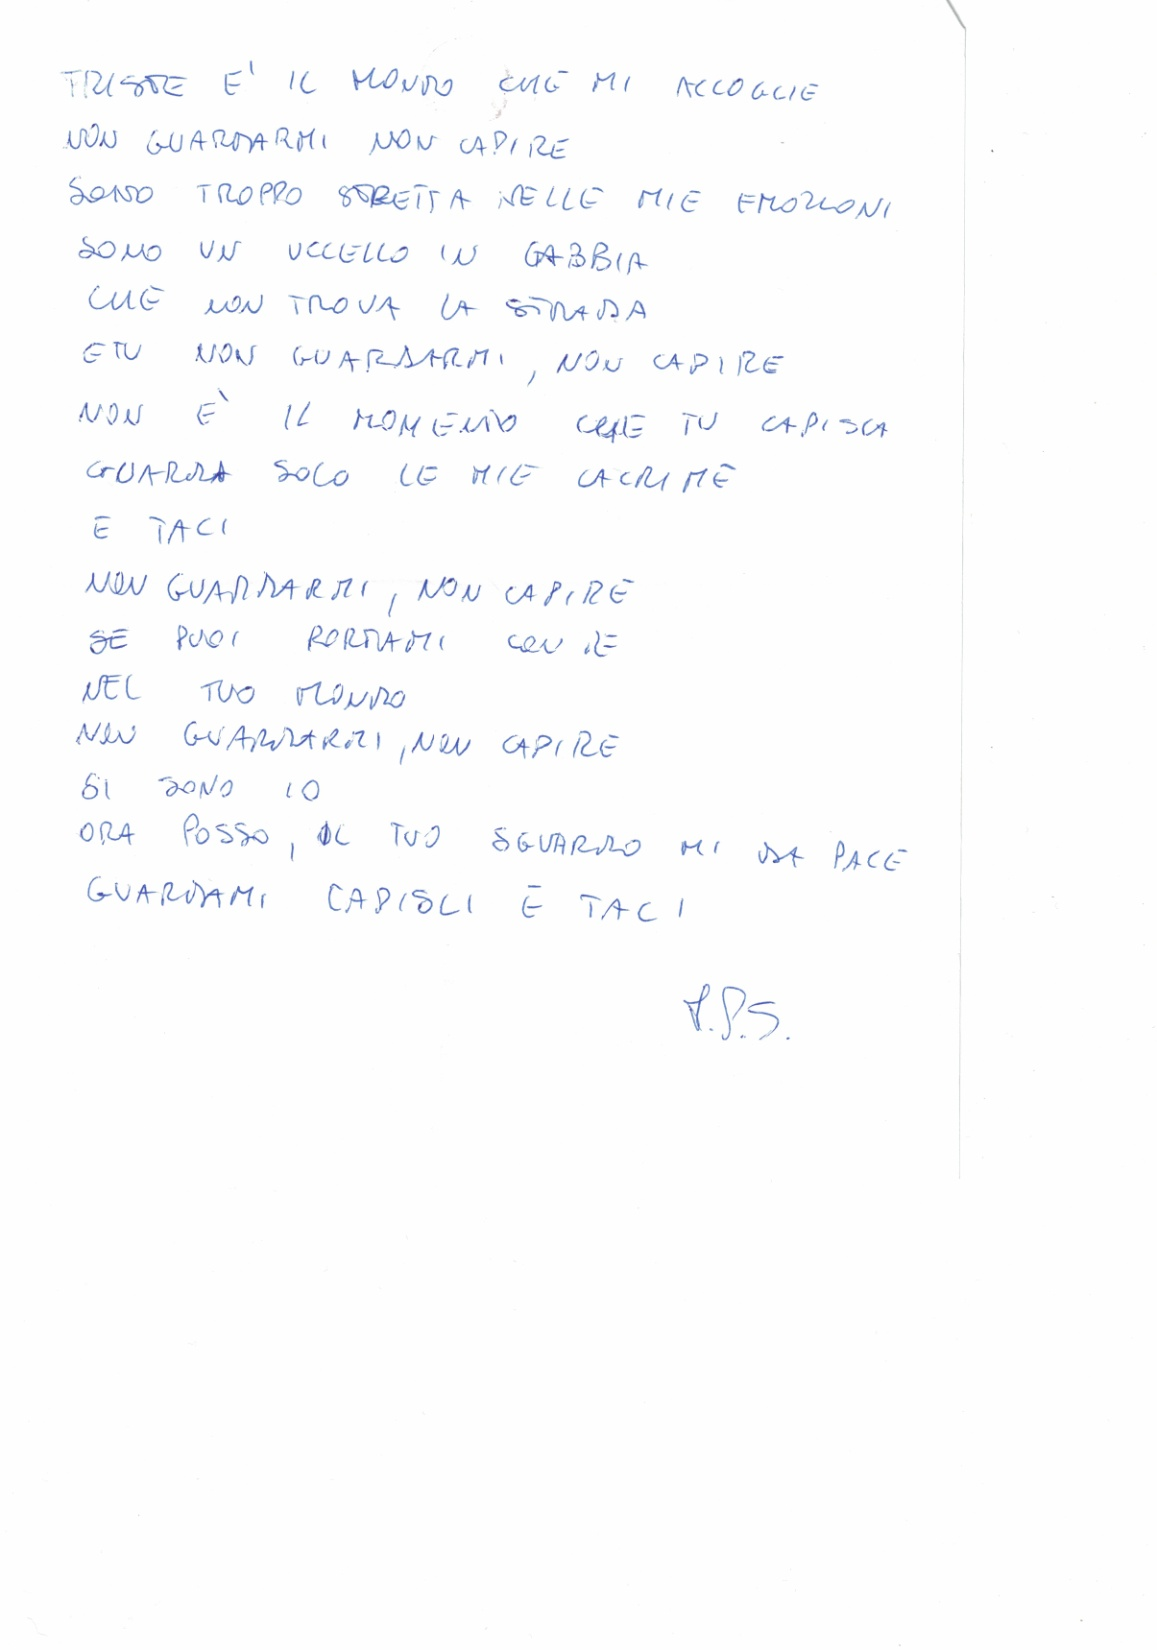 TRISTE E' IL MONDO CHE MI ACCOGLIE
NON GUARDARMI NON CAPIRE
SONO TROPPO STRETTA NELLE MIE EMOZIONI
SONO UN UCCELLO IN GABBIA
CHE NON TROVA LA STRADA
E TU NON GUARDARMI, NON CAPIRE
NON È IL MOMENTO CHE TU CAPISCA
GUARDA SOLO LE MIE LACRIME
E TACI
NON GUARDARMI, NON CAPIRE
SE PUOI PORTAMI CON TE
NEL TUO MONDO
NON GUARDARMI, NON CAPIRE
SI SONO IO
ORA POSSO, IL TUO SGUARDO MI DA PACE
GUARDAMI CAPISCI E TACI
P.S.